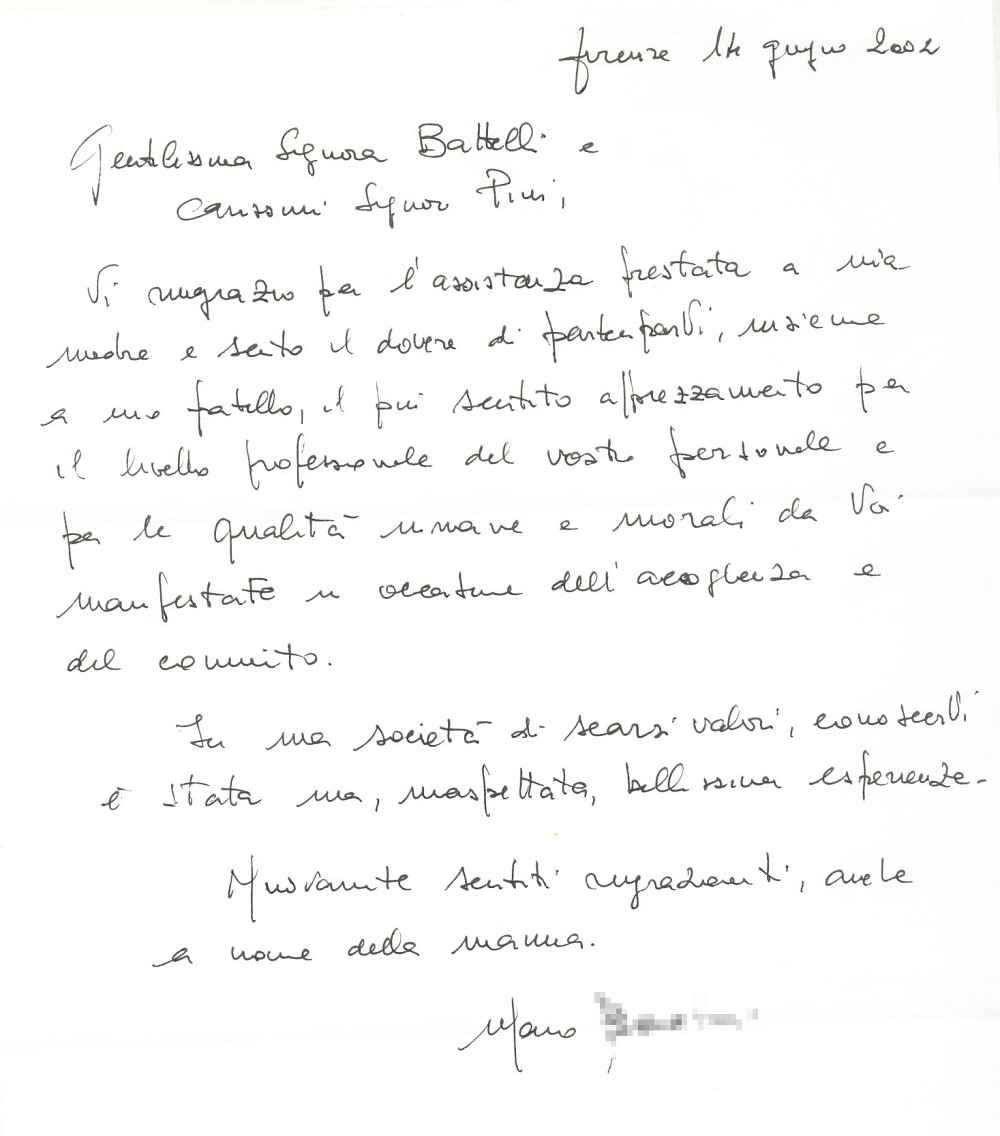 Firenze 14 giugno 2002
Gentilissima Signora Battelli e
Carissimi Signor Pini,
Vi ringrazio per l'assistenza prestata a mia
madre e sento il dovere di parteciparVi, insieme
a mio fratello, il più sentito apprezzamento per
il livello professionale del vostro personale e
per le qualità umane e morali da Voi
manifestate in occasione dell'accoglienza e
del commiato.
In una società di scarsi valori, conoscerVi
è stata una, inaspettata, bellissima esperienza.
Nuovamente sentiti ringraziamenti, anche
a nome della mamma.
Mario